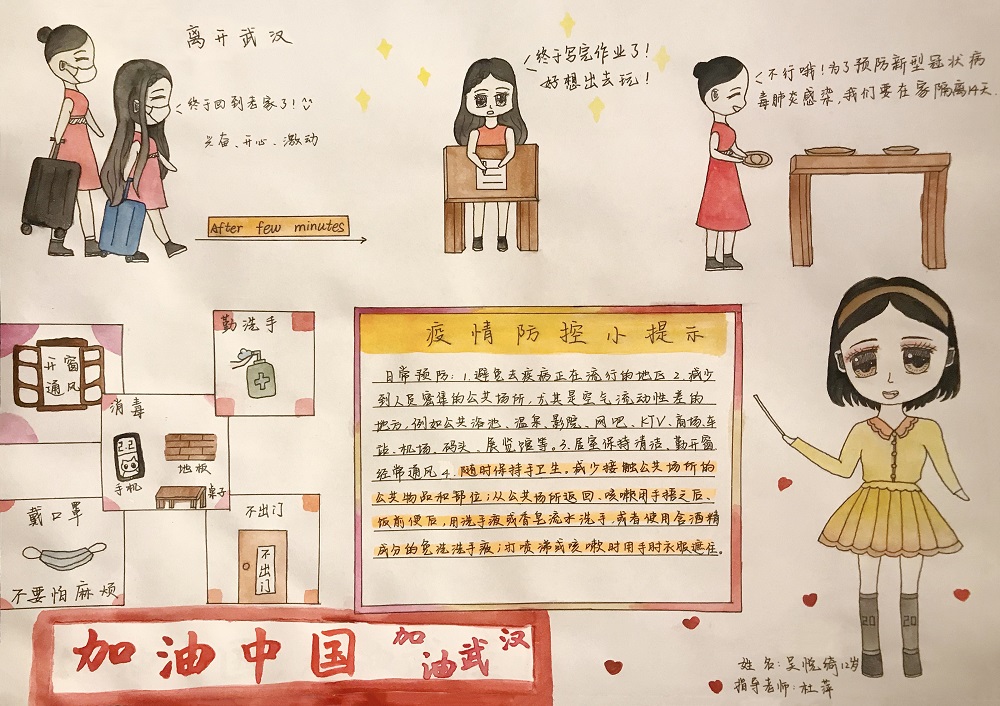 离开武汉
终于回到老家了!
兴奋、开心、激动
After few minutes
终于写完作业了!
好想出去玩!
不行哦!为了预防新型冠状病
毒肺炎感染,我们要在家隔离14天.
开窗
通风
勤洗手
消毒
2.2
手机
地板
桌子
戴口罩
不要怕麻烦
不出门
不出门
疫情防控小提示
日常预防:1.避免去疾病正在流行的地区2.减少
到人员密集的公共场所,尤其是空气流动性差的
地方,例如公共浴池、温泉、影院、网吧、KTV、商场、车
站、机场、码头、展览馆等。3.居室保持清洁、勤开窗
经常通风4.随时保持手卫生。减少接触公共场所的
公共物品和部位;从公共场所返回、咳嗽用手捂之后、
饭前便后,用洗手液或香皂流水洗手,或者使用含酒精
成分的免洗洗手液;打喷涕或咳嗽时用手肘衣服遮住。
加油中国
加油武汉
20
20
姓名:吴悦绮12岁
指导老师:杜萍